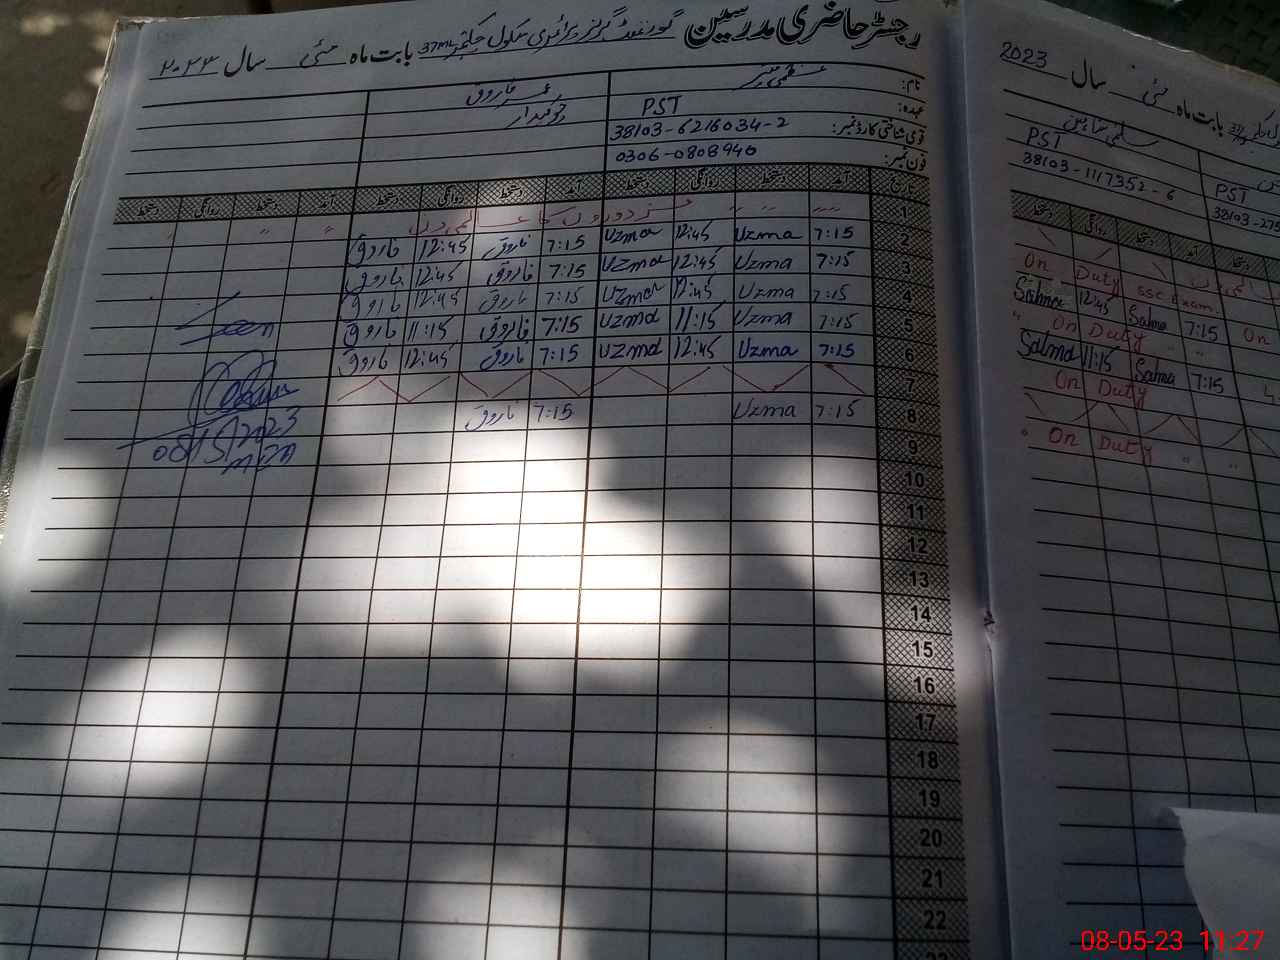 رجسٹر حاضری مدرسین گورنمنٹ گرلز پرائمری سکول چکنمبر 37ML بابت ماہ مئی سال ۲۰۲۳
نام: عظمیٰ عمر فاروق
عہدہ: PST چوکیدار
قومی شناختی کارڈ نمبر: 38103-6216034-2
فون نمبر: 0306-0808940
تاریخ آمد دستخط روانگی دستخط آمد دستخط روانگی دستخط آمد دستخط روانگی دستخط
1 مزدوروں کا عالمی دن
2 7:15 Uzma 12:45 Uzma 7:15 فاروق 12:45 فاروق
3 7:15 Uzma 12:45 Uzma 7:15 فاروق 12:45 فاروق
4 7:15 Uzma 12:45 Uzma 7:15 فاروق 12:45 فاروق
5 7:15 Uzma 11:15 Uzma 7:15 فاروق 11:15 فاروق
6 7:15 Uzma 12:45 Uzma 7:15 فاروق 12:45 فاروق
7
8 7:15 Uzma 7:15 فاروق
08/5/2023
9
10
11
12
13
14
15
16
17
18
19
20
21
22
23
بابت ماہ مئی سال 2023
سلمیٰ شاہین
PST PST
38103-1117352-6 38103-275
آمد دستخط روانگی دستخط
On Duty SSC Exam
Salma 7:15 Salma 12:45
On Duty " " On
Salma 7:15 Salma 11:15
On Duty
On Duty " "
08-05-23 11:27